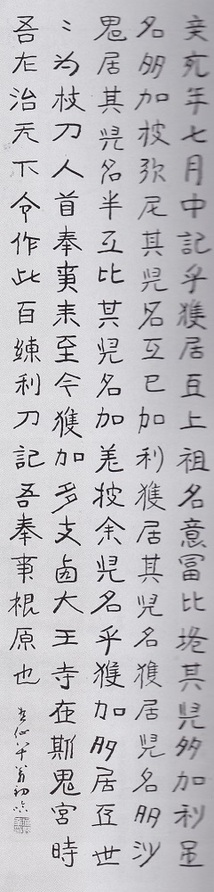 辛亥年七月中記乎獲居臣上祖名意冨比垝其児多加利足
名多加披弥尼其児名互已加利獲居其児名獲居児名多沙
鬼居其児名半互比其児名加差披余児名乎獲加多居臣世
々為杖刀人首奉事来至今獲加多支鹵大王寺在斯鬼宮時
吾左治天下令作此百練利刀記吾奉事根原也